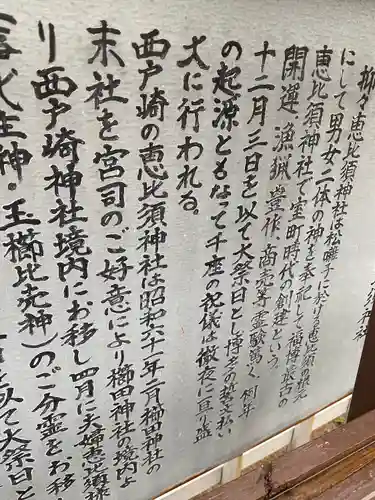 抑々恵比須神社は松囃子に於ける恵比須の根元
にして男女二体の神を表記して福博最古の
恵比須神社で室町時代の創建という。
開運、漁猟、豊作、商売等霊験篤く、例年
十二月三日を以て大祭日とし博多の誓文払い
の起源ともなって千座の祝儀は徹夜に亘り盛
大に行われる。
西戸崎の恵比須神社は昭和六十一年二月櫛田神社の
末社を宮司のご好意により櫛田神社の境内よ
り西戸崎神社境内にお移し四月に夫婦恵比須様
生神・玉櫛比売神)のご分霊をお移
を以て大祭日と